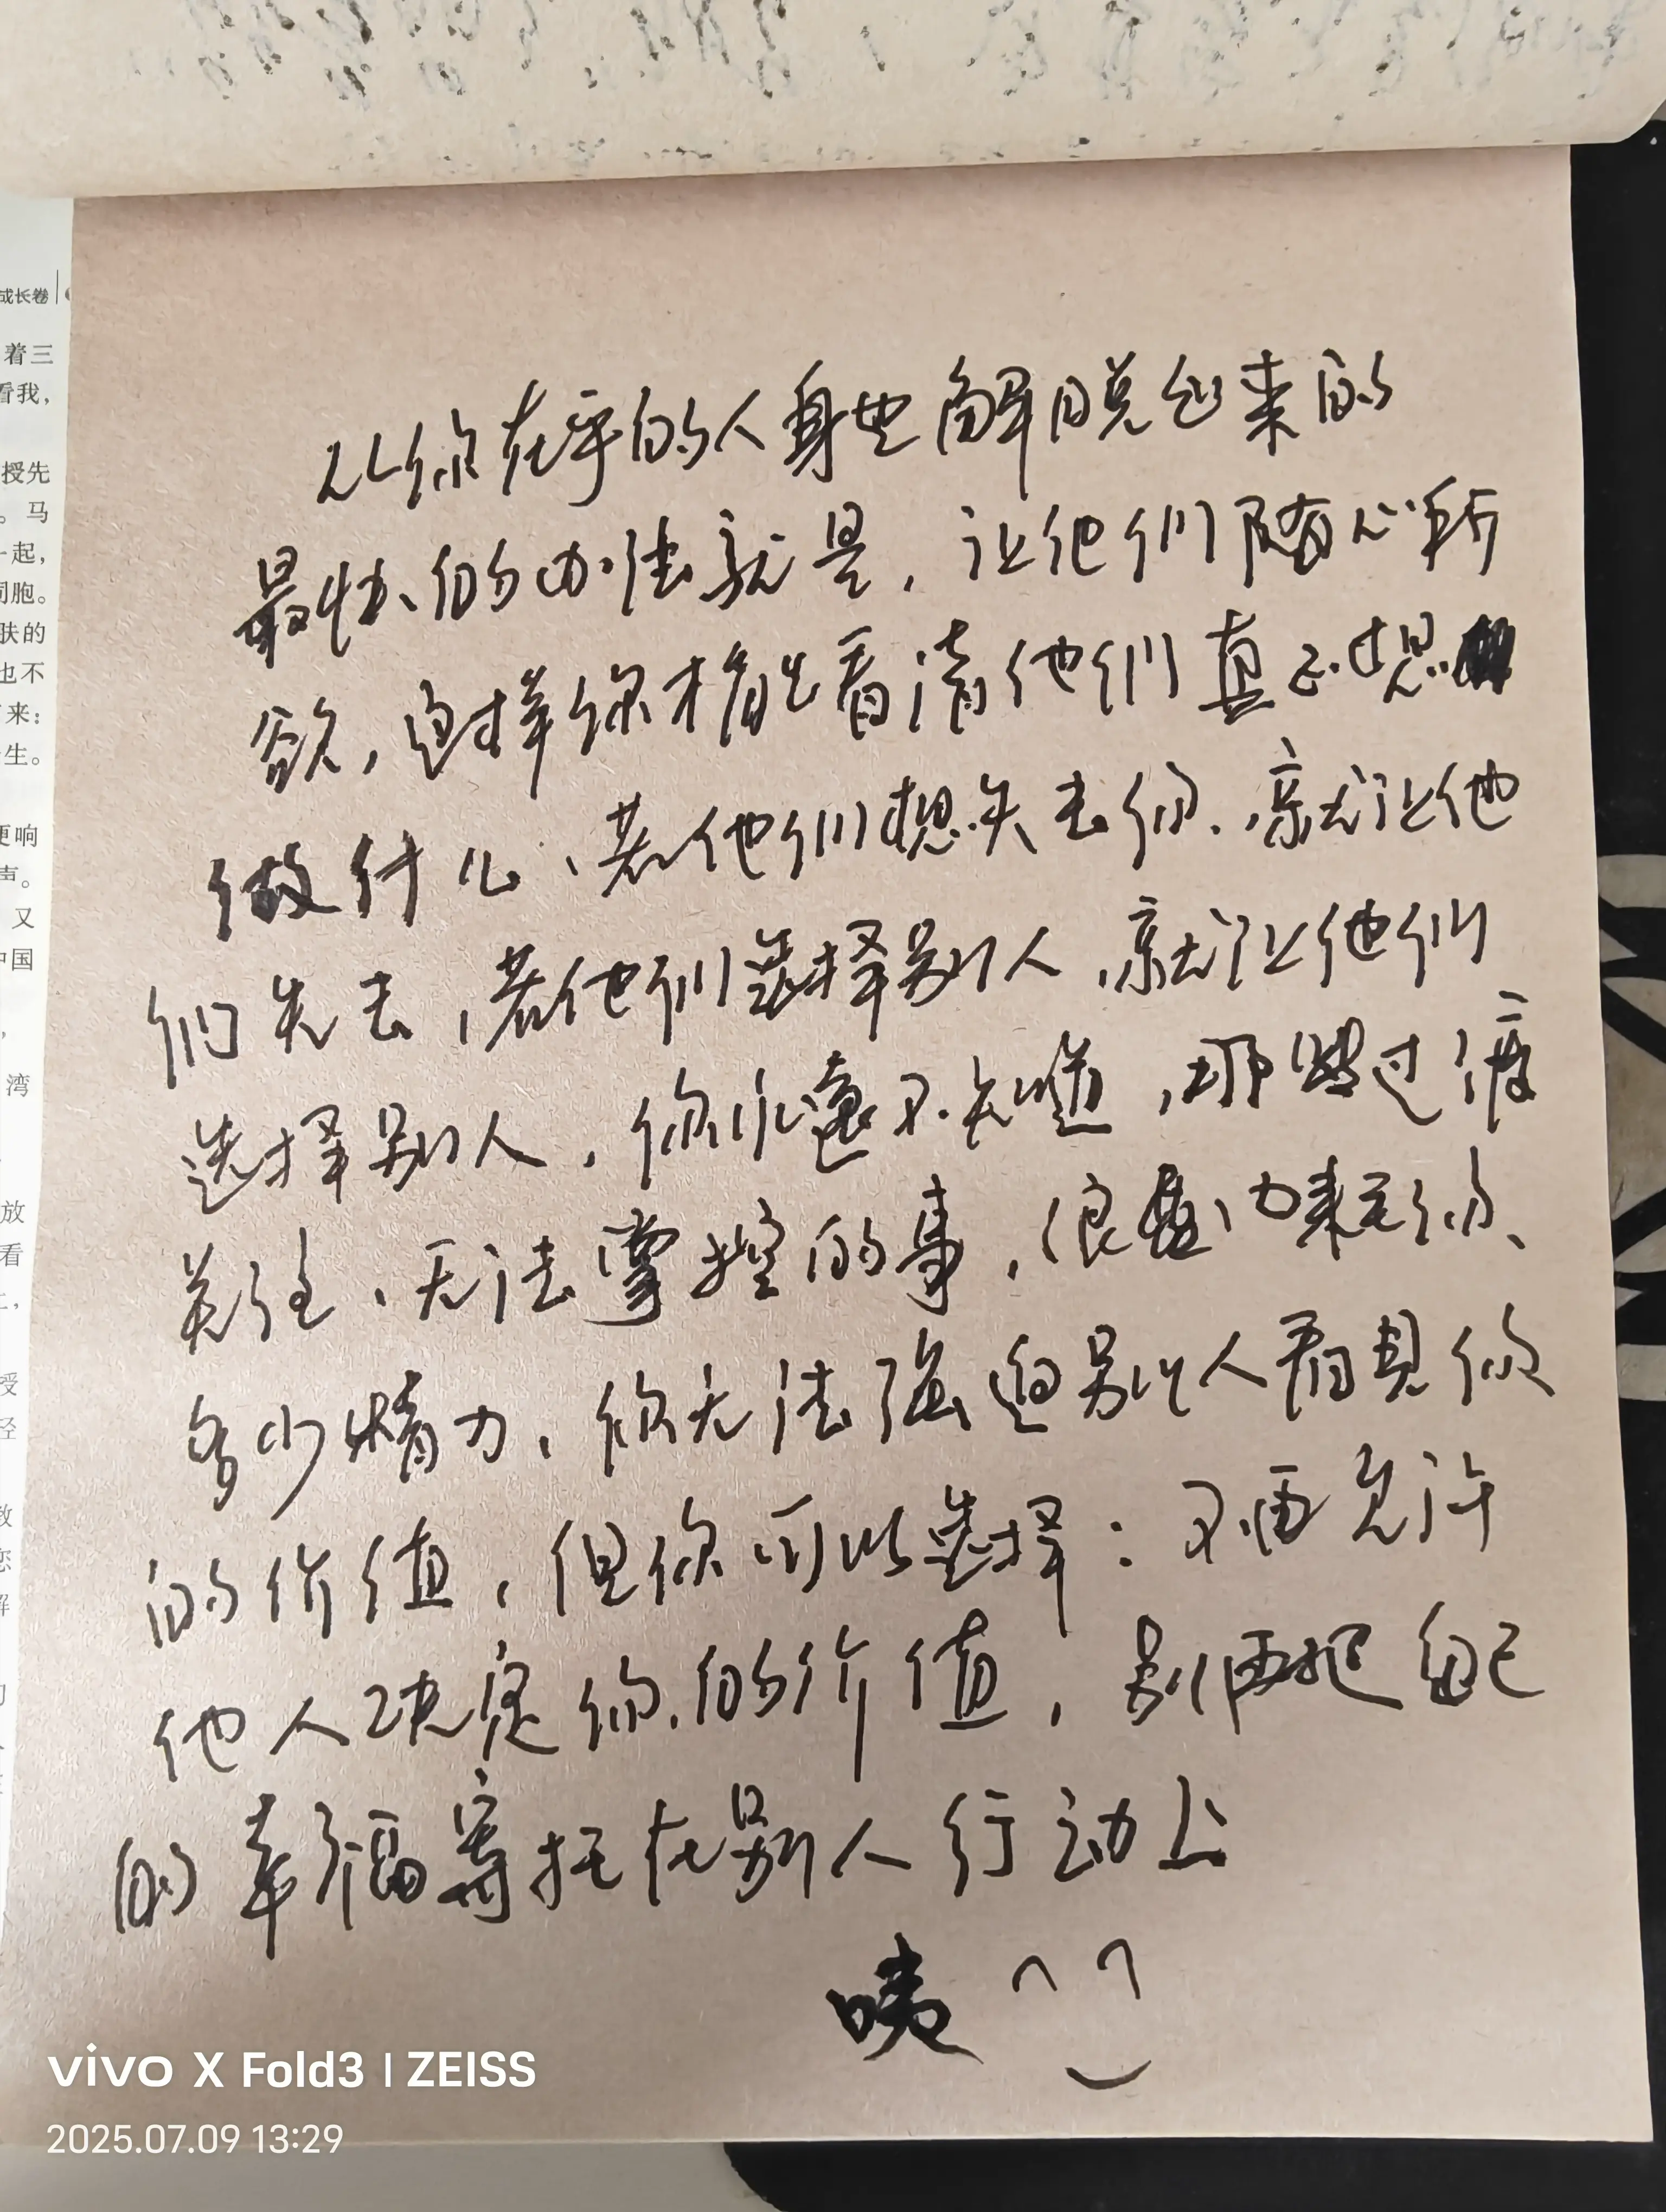 成长卷
着三
看我，
授先
。马
一起，
同胞。
肤的
也不
来：
生。
更响
声。
又
中国
湾
放
看
从你在乎的人身上解脱出来的
最快的办法就是，让他们随心所
欲，这样你才能看清他们真正想
做什么、若他们想失去你、就让他
们失去，若他们选择别人，就让他们
选择别人，你永远不知道，那些过度
关注、无法掌控的事，浪费了你、
多少精力，你无法强迫别人看见你
的价值，但你可以选择：不再允许
他人决定你的价值，别再把自己
的幸福寄托在别人行动上
咦
vivo X Fold3 | ZEISS
2025.07.09 13:29